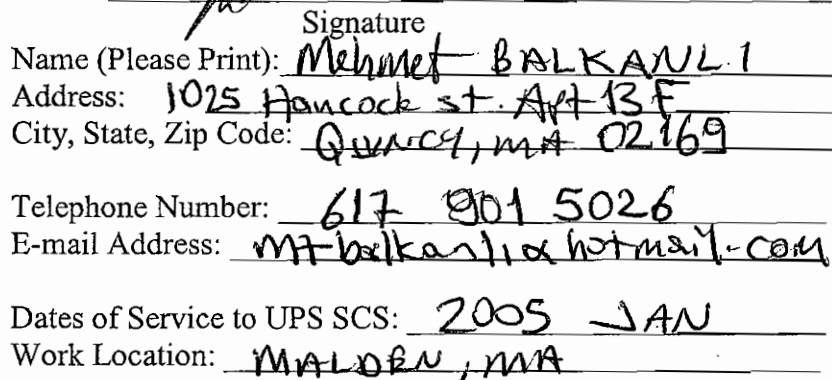 Signature
Name (Please Print): Mehmet BALKANLI
Address: 1025 Hancock st. Apt 13 F
City, State, Zip Code: Quincy, MA 02169
Telephone Number: 617 901 5026
E-mail Address: mtbalkanli@hotmail.com
Dates of Service to UPS SCS: 2005 JAN
Work Location: MALDEN, MA